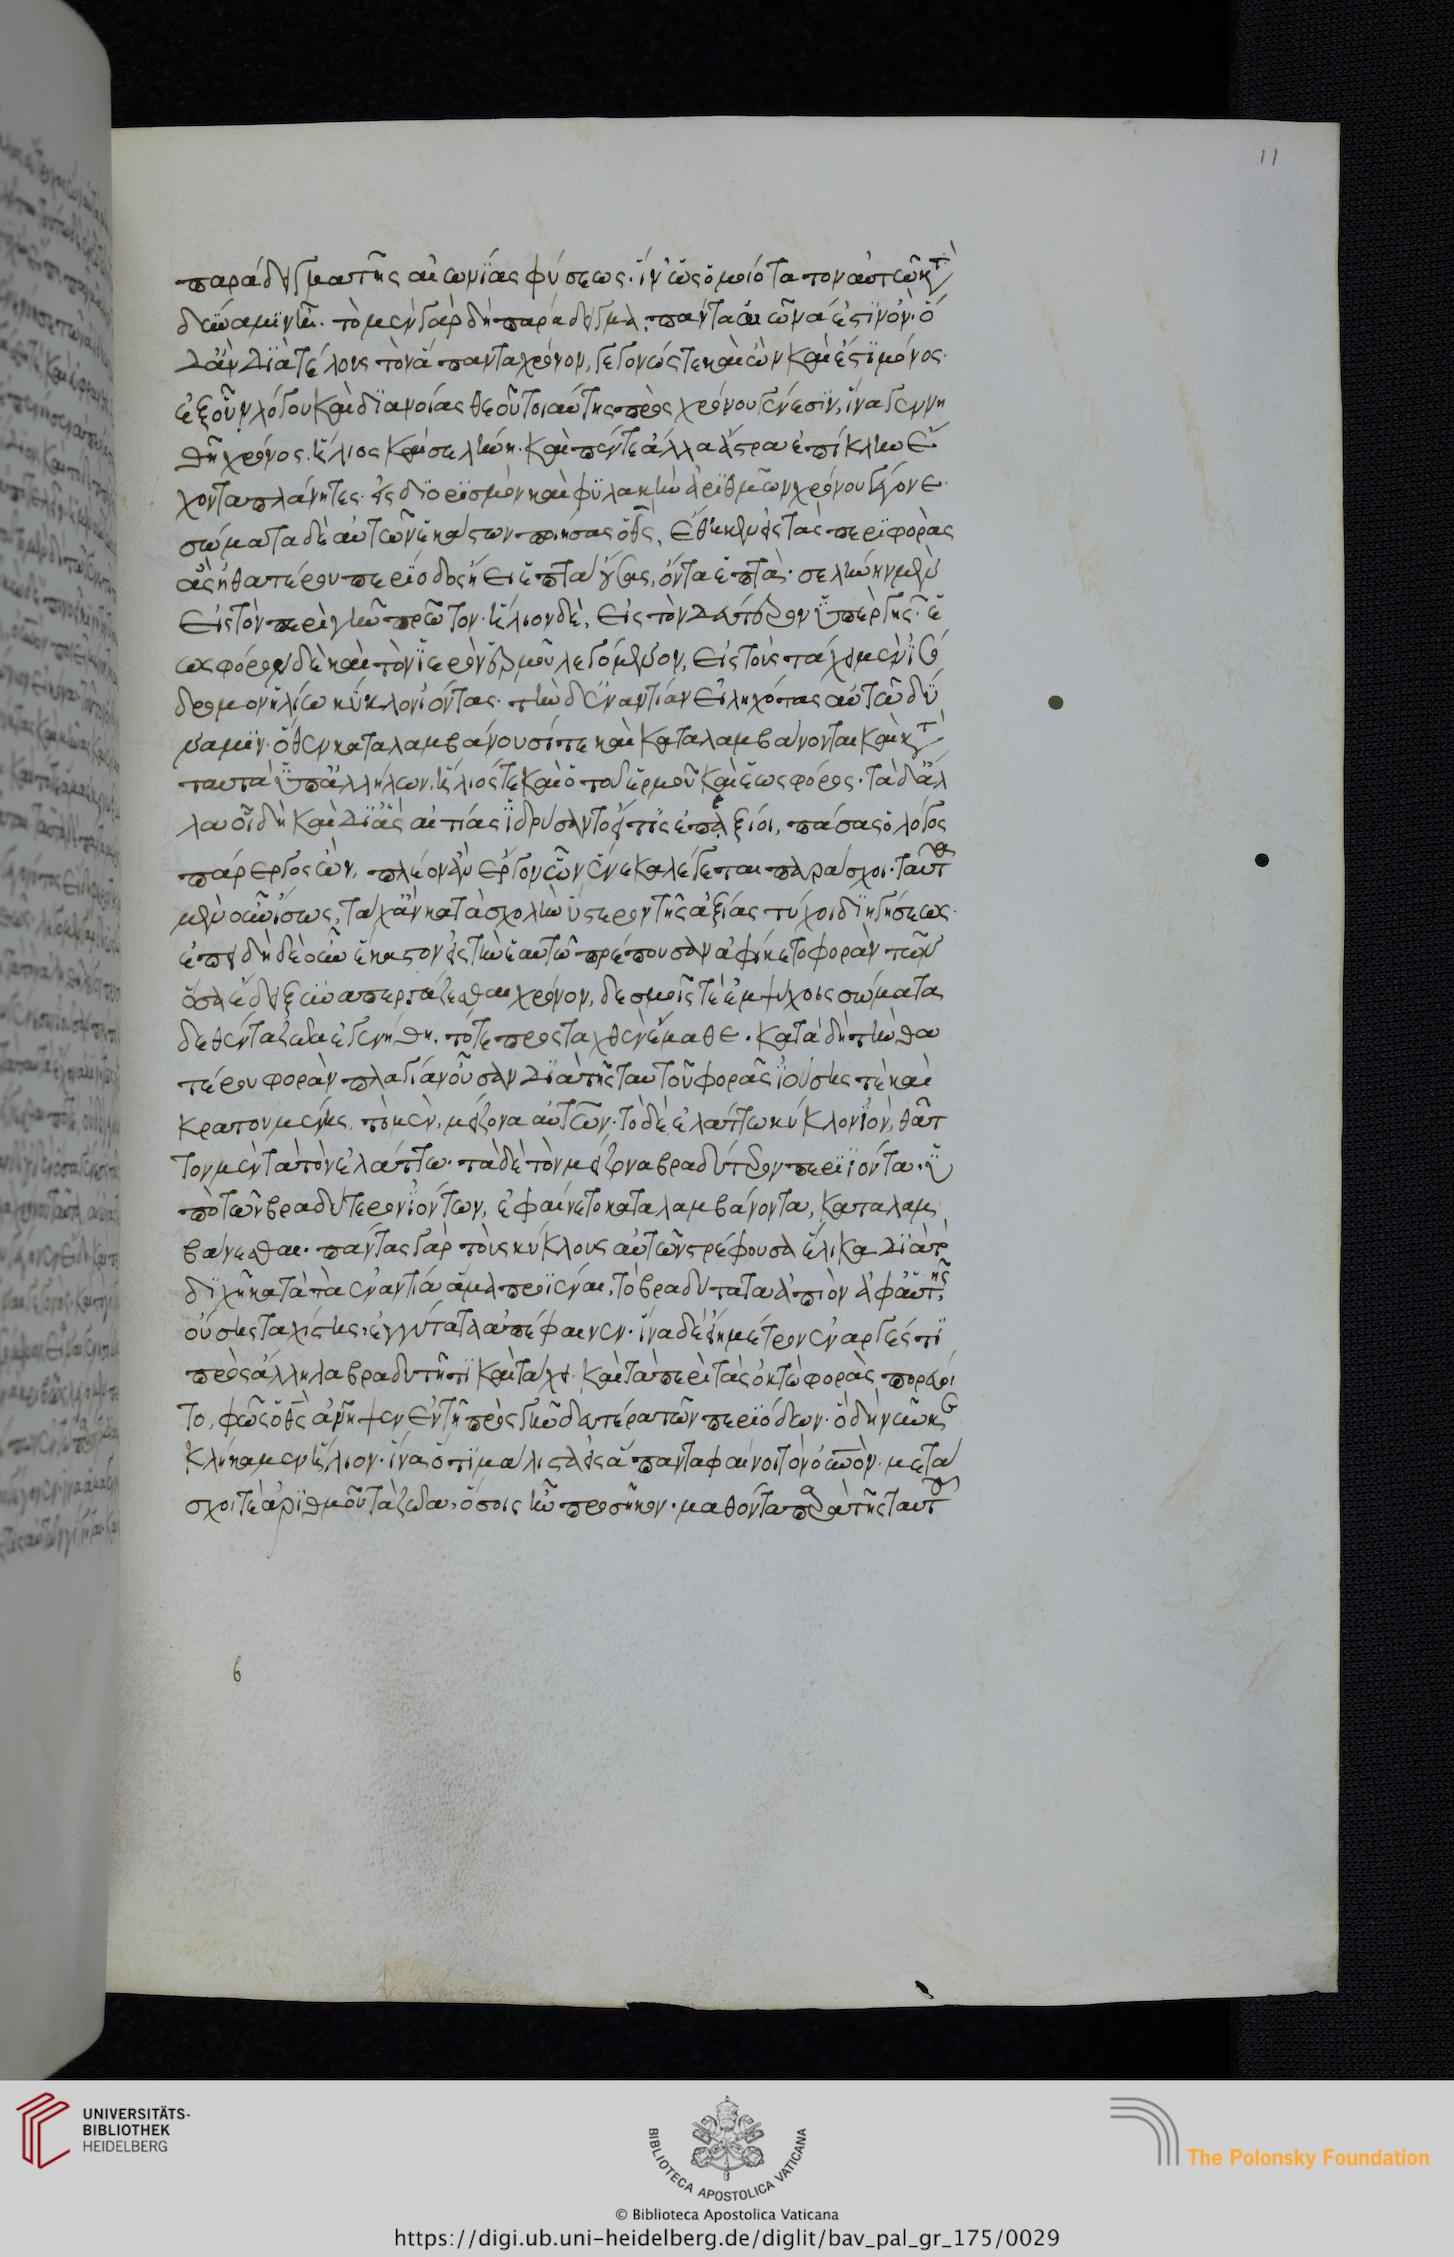 παράδειγμα τῆς αἰωνίας φύσεως. ἵν' ὡς ὁμοιότατον αὐτῶ κατὰ
δύναμιν ἦ. τὸ μὲν γὰρ δὴ παράδειγμα, πάντα αἰῶνά ἐστιν ὄν. ὁ
δ' ἂν διὰ τέλους τὸν ἅπαντα χρόνον, γεγονώς τε καὶ ὢν καὶ ἐστι μόνος.
ἐξ οὖν λόγου καὶ διανοίας θεοῦ τοιαύτης πρὸς χρόνου γένεσιν, ἵνα γεννη
θῆ χρόνος. ἥλιος καὶ σελήνη. καὶ πέντε ἄλλα ἄστρα ἐπίκλην ἔ
χοντα πλάνητες. εἰς διορισμὸν καὶ φυλακὴν ἀριθμῶν χρόνου γέγονε.
σώματα δὲ αὐτῶν ἑκάστων ποιήσας ὁ θς, ἔθηκεν εἰς τὰς περιφορὰς
ἃς ἡ θατέρου περίοδος ἤει ἑπτὰ οὔσας, ὄντα ἑπτά. σελήνην μὲν
εἰς τὸν περὶ γῆν πρῶτον. ἥλιον δὲ, εἰς τὸν δεύτερον ὑπὲρ γῆς. ἑ
ωσφόρον δὲ καὶ τὸν ἱερὸν ἑρμοῦ λεγόμενον, εἰς τοὺς τάχει μὲν ἰσό
δρομον ἡλίω κύκλον ἰόντας. τὴν δ' ἐναντίαν εἰληχότας αὐτῶ δύ
ναμιν. ὅθεν καταλαμβάνουσί τε καὶ καταλαμβάνονται καὶ κατὰ
ταυτὰ ὑπ' ἀλλήλων. ἥλιός τε καὶ ὁ τοῦ ἑρμοῦ καὶ ἑωσφόρος. τὰ δ' ἄλ
λα οἷ δὴ καὶ δι' ἃς αἰτίας ἱδρύσαντο εἴ τις ἐπεξίοι, πάσας ὁ λόγος
πάρεργος ὢν, πλέον ἂν ἔργον ὧν ἕνεκα λέγεται παράσχοι. ταῦτα
μὲν οὖν ἴσως, τάχ' ἂν κατὰ σχολὴν ὕστερον τῆς ἀξίας τύχοι διηγήσεως.
ἐπειδὴ δὲ οὖν ἕκαστον εἰς τὴν ἑαυτῶ πρέπουσαν ἀφίκετο φορὰν τῶν
ὅσα ἔδει ξυναπεργάζεσθαι χρόνον, δεσμοῖς τὲ ἐμψύχοις σώματα
δεθέντα ζῶα ἐγενήθη. τό τε προσταχθὲν ἔμαθε. κατὰ δὴ τὴν θα
τέρου φορὰν πλαγίαν οὖσαν διὰ τῆς ταυτοῦ φορᾶς ἰούσης τὲ καὶ
κρατουμένης, τὸ μὲν, μείζονα αὐτῶν. τὸ δὲ ἐλάττω κύκλον ἰὸν, θᾶτ
τον μὲν τὰ τὸν ἐλάττω. τὰ δὲ τὸν μείζονα βραδύτερον περιϊόντα. ὑ
πὸ τῶν βραδύτερον ἰόντων, ἐφαίνετο καταλαμβάνοντα, καταλαμ
βάνεσθαι. πάντας γὰρ τοὺς κύκλους αὐτῶν στρέφουσα ἕλικα διὰ τὸ
διχῆ κατὰ τὰ ἐναντία ἅμα προϊέναι, τὸ βραδύτατα ἀπιὸν ἀφ' αὑτῆς
οὔσης ταχίστης, ἐγγύτατα ἀπέφαινεν. ἵνα δὲ εἴη μέτρον ἐναργές τι
πρὸς ἄλληλα βραδυτῆτι καὶ τάχει. καὶ τὰ περὶ τὰς ὀκτὼ φορὰς πορεύοι
το, φῶς ὁ θς ἀνῆψεν ἐν τῆ πρὸς γῆν δευτέρα τῶν περιόδων. ὃ δὴ νῦν κε
κλήκαμεν ἥλιον. ἵνα ὅτι μάλιστα εἰς ἅπαντα φαίνοι τὸν οὐνὸν. μετά
σχοι τὲ ἀριθμοῦ τὰ ζῶα, ὅσοις ἦν προσῆκον. μαθόντα παρὰ τῆς ταυτοῦ
11
© Biblioteca Apostolica Vaticana
https://digi.ub.uni-heidelberg.de/diglit/bav_pal_gr_175/0029
UNIVERSITÄTS-
BIBLIOTHEK
HEIDELBERG
BIBLIOTECA APOSTOLICA VATICANA
The Polonsky Foundation